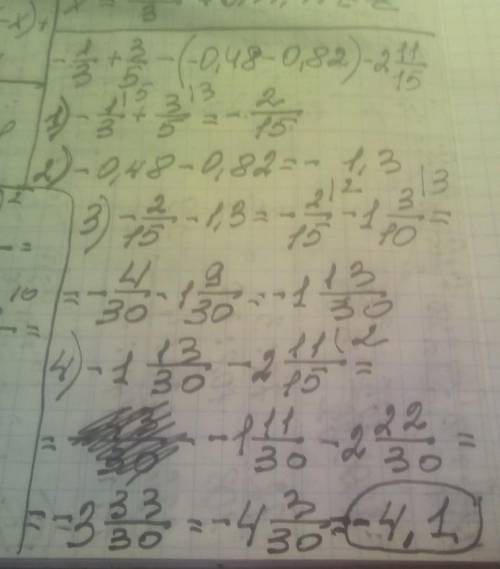 x = — 3
-x)
-1/3 + 3/5 - (-0,48 - 0,82) - 2 11/15
1) -1/3 |5 + 3/5 |3 = -2/15
2) -0,48 - 0,82 = - 1,3
3) -2/15 - 1,3 = -2/15 |2 - 1 3/10 |3 =
= -4/30 - 1 9/30 = -1 13/30
4) -1 13/30 - 2 11/15 |2 =
= - -1 11/30 - 2 22/30 =
= -3 33/30 = -4 3/30 = -4,1
2
=
10
=